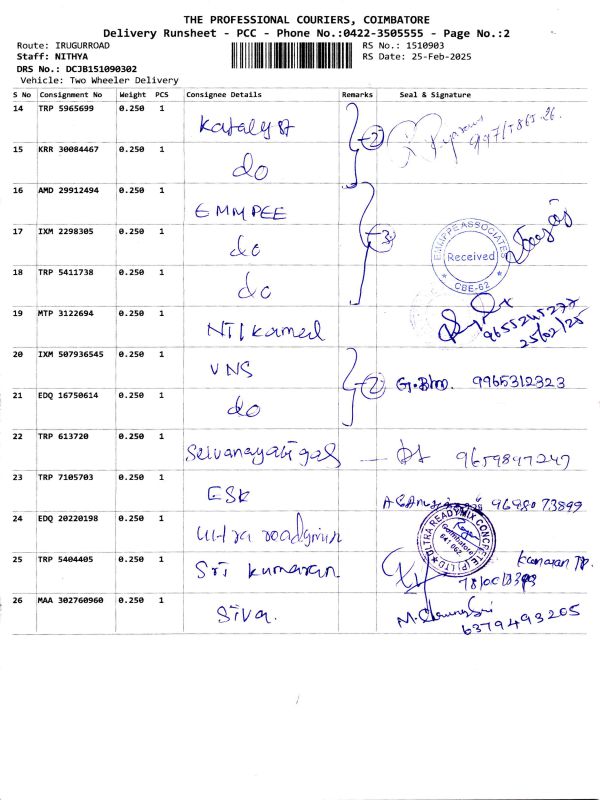 THE PROFESSIONAL COURIERS, COIMBATORE
Delivery Runsheet - PCC - Phone No.:0422-3505555 - Page No.:2
Route: IRUGURROAD RS No.: 1510903
Staff: NITHYA RS Date: 25-Feb-2025
DRS No.: DCJB151090302
Vehicle: Two Wheeler Delivery
S No Consignment No Weight PCS Consignee Details Remarks Seal & Signature
14 TRP 5965699 0.250 1 Katalyst
15 KRR 30084467 0.250 1 do 2
16 AMD 29912494 0.250 1 EMMPEE
17 IXM 2298305 0.250 1 do 3
EMMPPE ASSOCIATES
Received
CBE-62
18 TRP 5411738 0.250 1 do
19 MTP 3122694 0.250 1 9655245277
25/02/25
20 IXM 507936545 0.250 1 VNS
21 EDQ 16750614 0.250 1 do 2 9965312323
22 TRP 613720 0.250 1 Selvanayabigas 9659847247
23 TRP 7105703 0.250 1 ESK 9698073899
24 EDQ 20220198 0.250 1 Ultra
ULTRA READYMIX CONCRETE (P) LTD
Coimbatore
641 062
25 TRP 5404405 0.250 1 Sri Kumaran
26 MAA 302760960 0.250 1 Siva.
6379493205